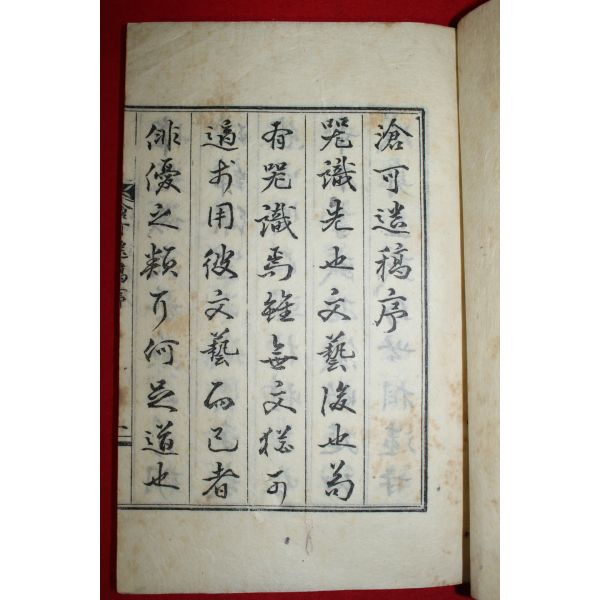 滄可遺稿序
器識先也文藝後也苟
有器識焉雖無文猶可
適於用彼文藝而已者
俳優之類耳何足道也